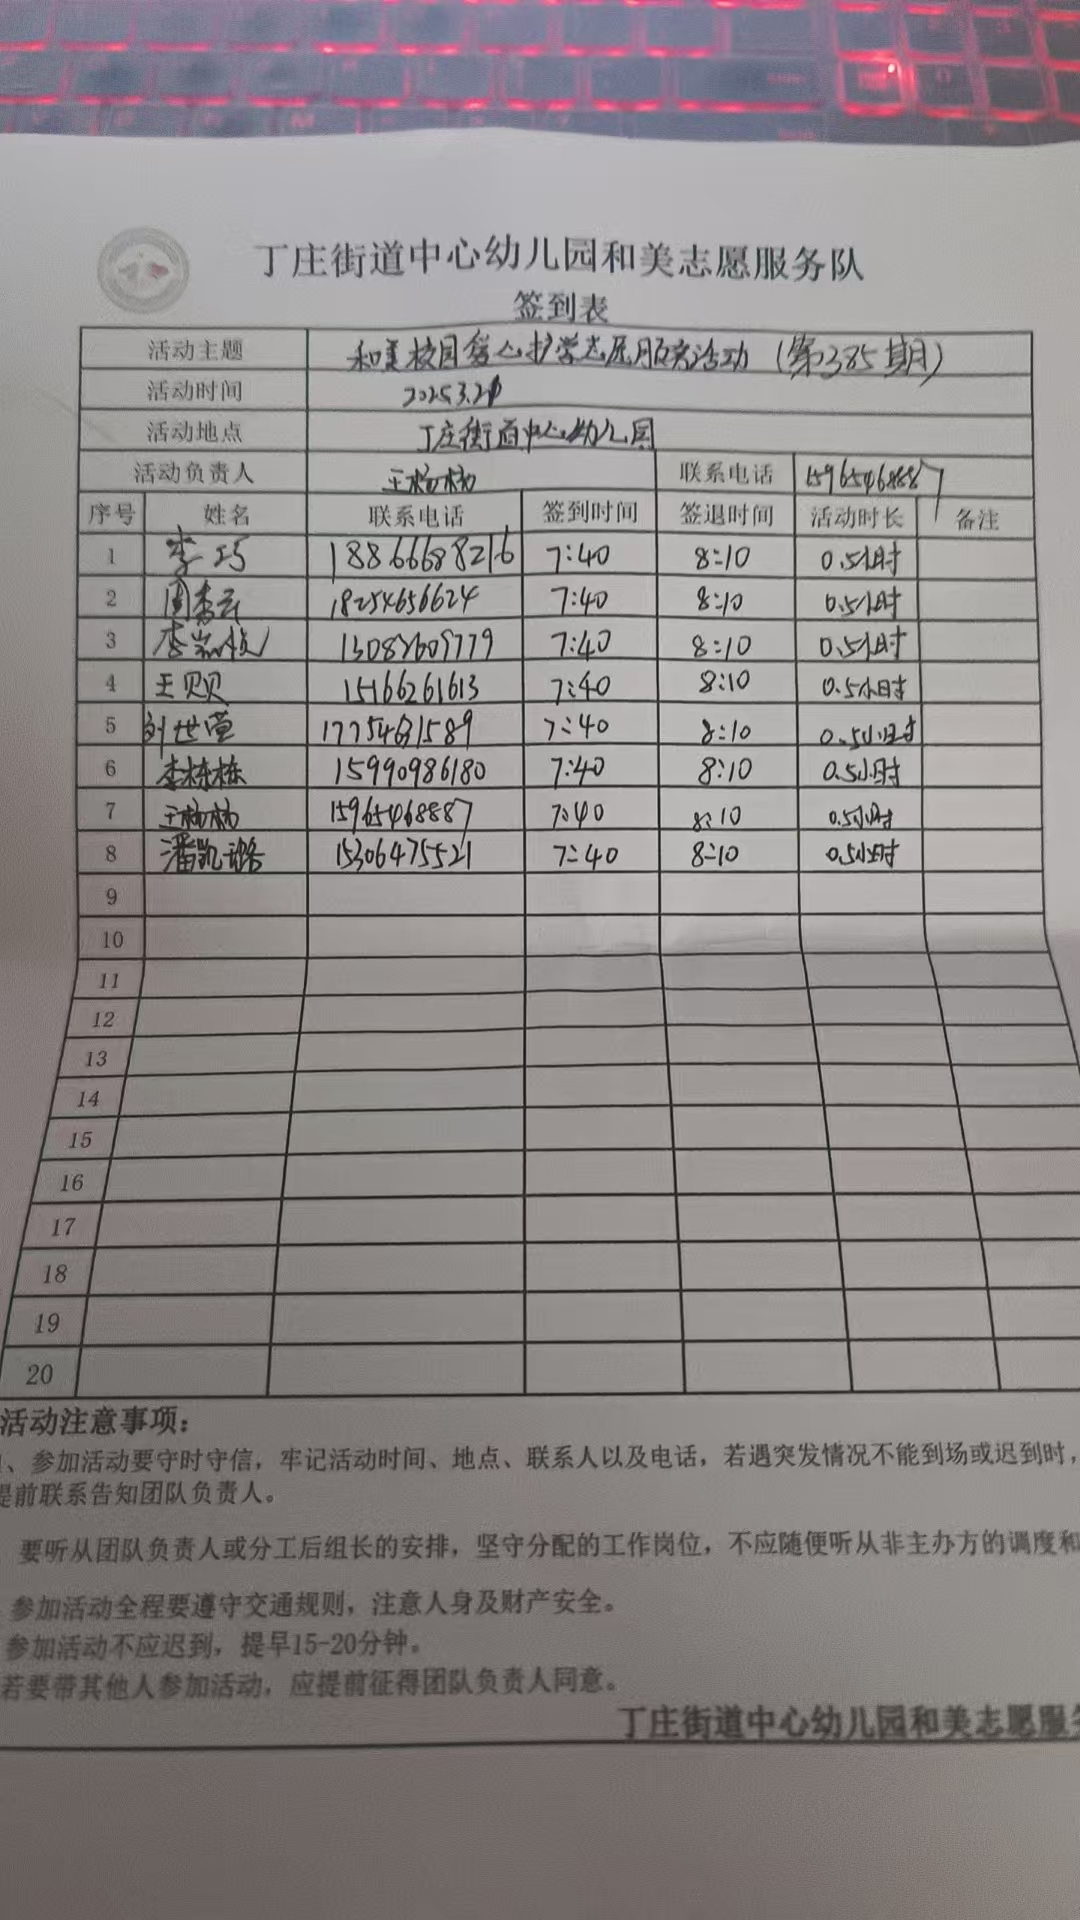 丁庄街道中心幼儿园和美志愿服务队
签到表
活动主题 和美校园爱心护学志愿服务活动（第385期）
活动时间 2025.3.21
活动地点 丁庄街道中心幼儿园
活动负责人 王杨杨 联系电话 15965468887
序号 姓名 联系电话 签到时间 签退时间 活动时长 备注
1 李巧 18866688216 7:40 8:10 0.5小时
2 周秀云 18254656624 7:40 8:10 0.5小时
3 李 7:40 8:10 0.5小时
4 王贝贝 15166261613 7:40 8:10 0.5小时
5 刘世莹 7:40 8:10 0.5小时
6 李栋栋 15990986180 7:40 8:10 0.5小时
7 王杨杨 15965468887 7:40 8:10 0.5小时
8 潘凯 15306475521 7:40 8:10 0.5小时
9
10
11
12
13
14
15
16
17
18
19
20
活动注意事项：
1、参加活动要守时守信，牢记活动时间、地点、联系人以及电话，若遇突发情况不能到场或迟到时，
提前联系告知团队负责人。
要听从团队负责人或分工后组长的安排，坚守分配的工作岗位，不应随便听从非主办方的调度和
参加活动全程要遵守交通规则，注意人身及财产安全。
参加活动不应迟到，提早15-20分钟。
若要带其他人参加活动，应提前征得团队负责人同意。
丁庄街道中心幼儿园和美志愿服务